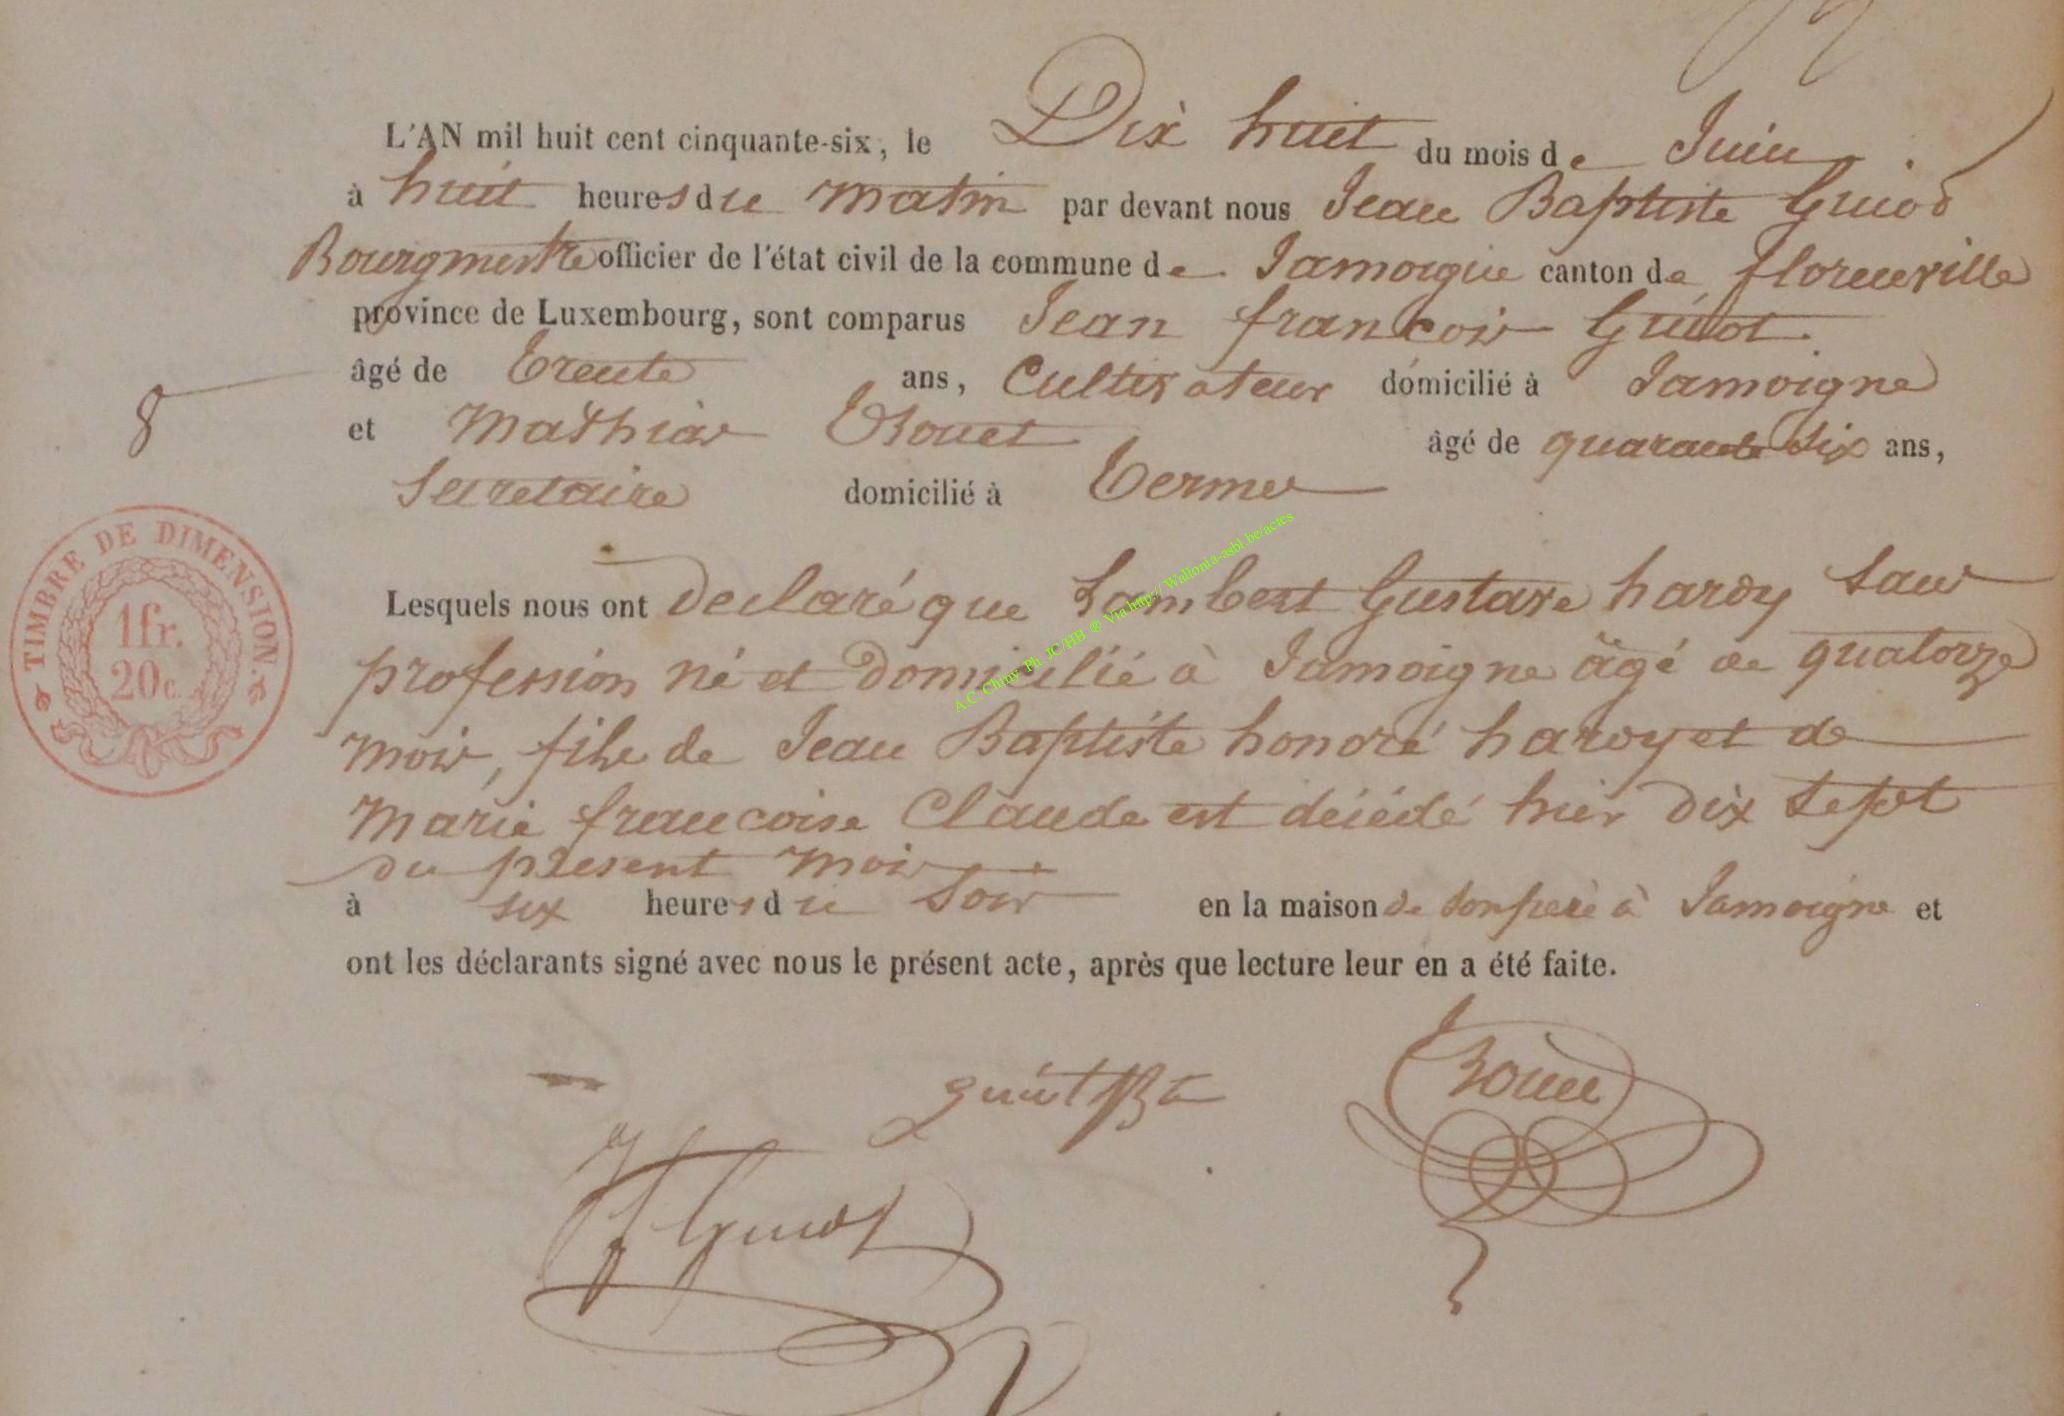 L'AN mil huit cent cinquante-six, le Dix huit du mois de Juin
à huit heures du matin par devant nous Jean Baptiste Guiot
Bourgmestre officier de l'état civil de la commune de Jamoigne canton de florenville
province de Luxembourg, sont comparus Jean francois Guiot
âgé de trente ans, Cultivateur domicilié à Jamoigne
8
et Mathias âgé de quarante six ans,
Secretaire domicilié à Termes
Lesquels nous ont declaré que Lambert Gustave hardy sans
profession né et domicilié à Jamoigne âgé de quatorze
mois, fils de Jean Baptiste honoré hardy et de
Marie francoise Claude est décédé hier dix sept
du present mois
à six heures du soir en la maison de son pere à Jamoigne et
ont les déclarants signé avec nous le présent acte, après que lecture leur en a été faite.
TIMBRE DE DIMENSION.
1fr.
20c.
A.C Chiny Ph JC/HB ® Via http:// Wallonia-asbl.be/actes
guiot Bte
JF Guiot